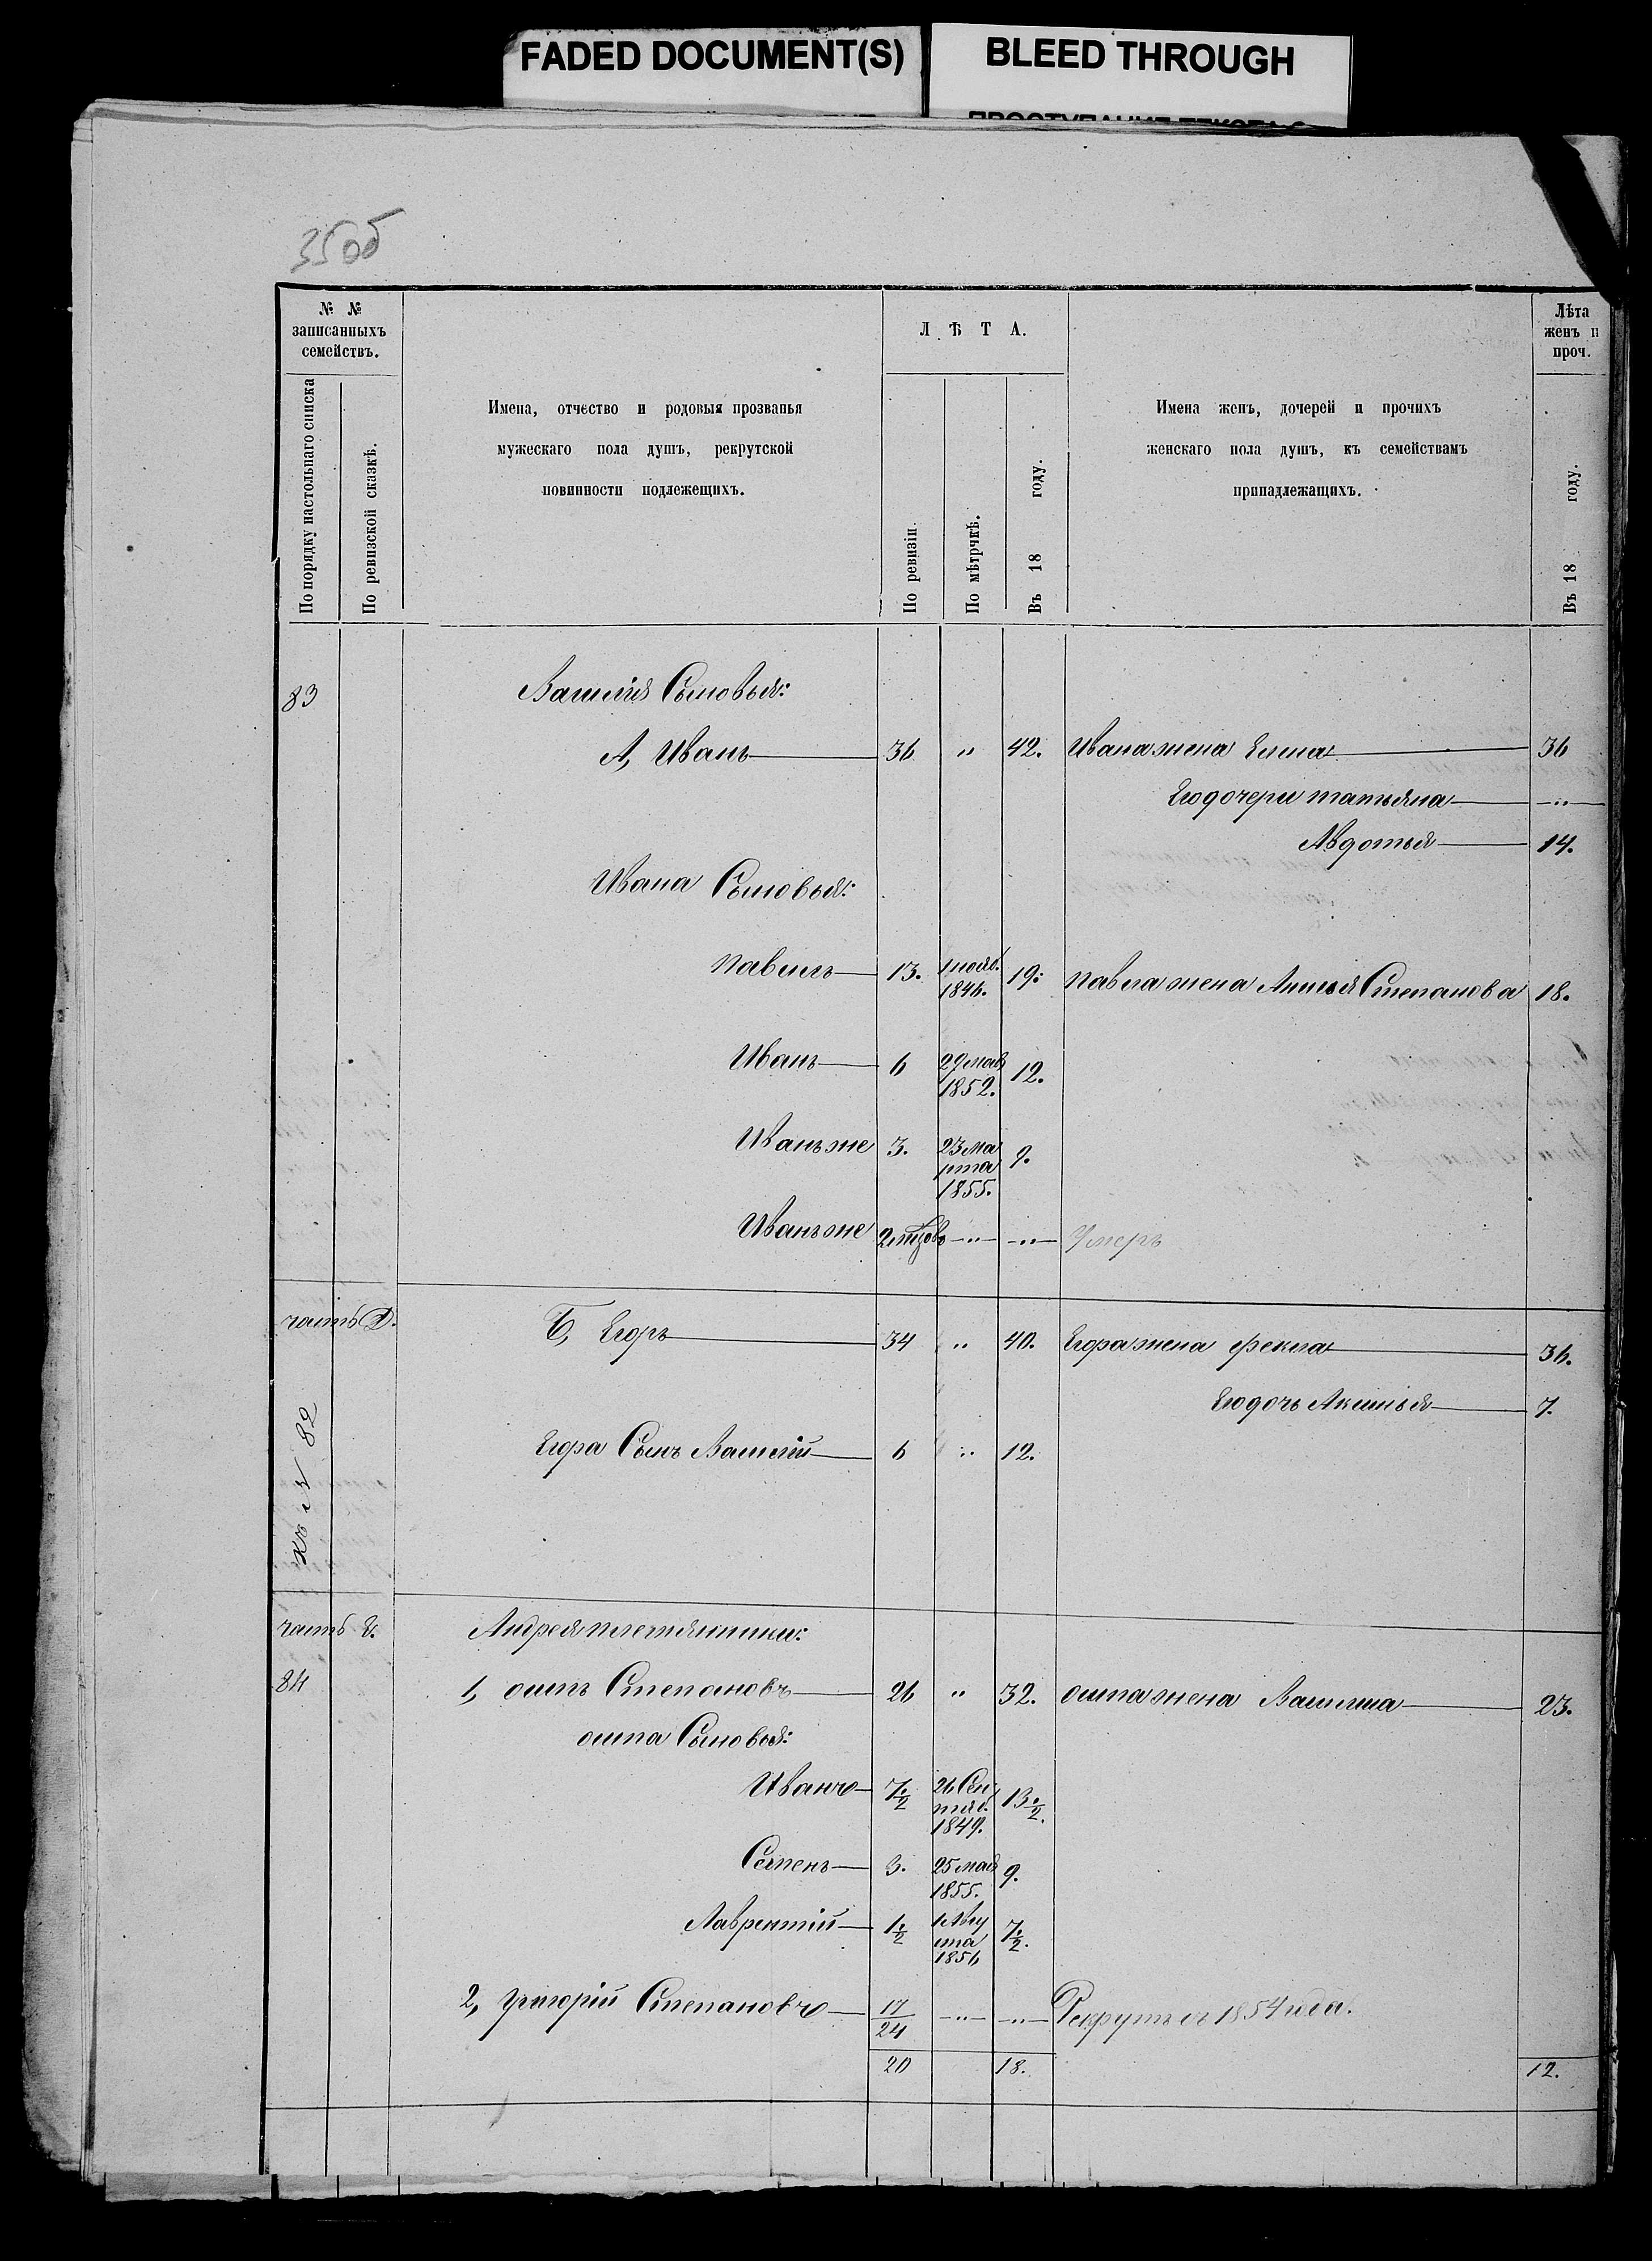 FADED DOCUMENT(S)
BLEED THROUGH
35об
№ №
записанныхъ
семействъ.
По порядку настольнаго списка
По ревизской сказкѣ.
Имена, отчество и родовыя прозванья
мужескаго пола душъ, рекрутской
повинности подлежещихъ.
ЛѢТА.
По ревизіи.
По мѣтрчкѣ.
Въ 18 году.
Имена женъ, дочерей и прочихъ
женскаго пола душъ, къ семействамъ
принадлежащихъ.
Лѣта
женъ и
проч.
Въ 18 году.
83 Василія Сыновья:
А, Иванъ 36 " 42. Ивана жена Елена 36
Его дочери татьяна "
Авдотья 14.
Ивана Сыновья:
павелъ 13. 1 нояб. 1846. 19. павла жена Анисья Степанова 18.
Иванъ 6 29 мая 1852. 12.
Иванъ же 3. 23 марта 1855. 9.
Иванъ же " " Умеръ
часть Д. Б, Егоръ 34 " 40. Егора жена фекла 36.
Его дочь Аксинья 7.
къ № 82
Егора Сынъ Василій 6 " 12.
часть
Андрея племянники:
84 1, осипъ Степановъ 26 " 32. осипа жена Василиса 23.
осипа Сыновья:
Иванъ 7 1/2 26 Сентяб. 1849. 13 1/2.
Семенъ 3. 25 мая 1855. 9.
Лаврентій 1 1/2 1 Августа 1856 7 1/2.
2, григорій Степановъ 17/24 " " Рекрутъ съ 1854 года.
20 18. 12.